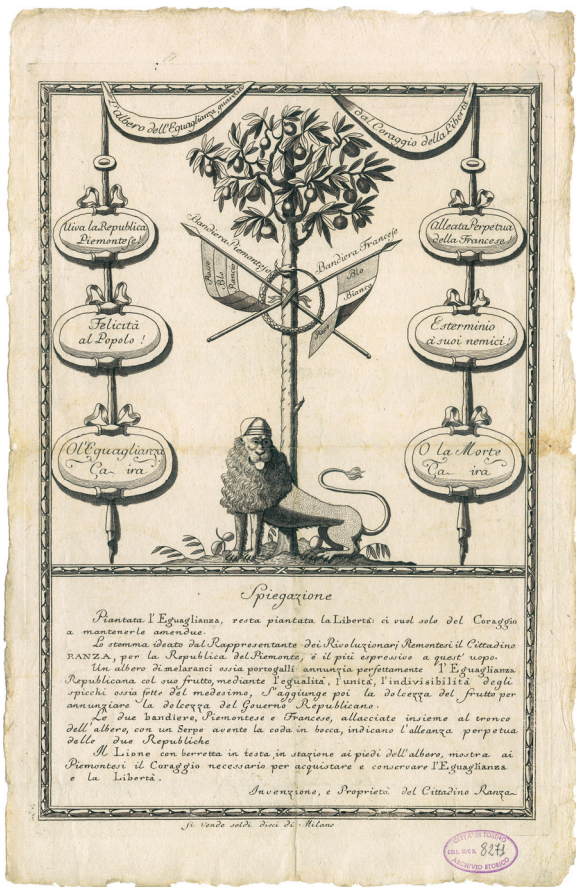 L'albero dell'Eguaglianza guardato
dal Coraggio della Libertà
Viva la Republica
Piemontese!
Alleata Perpetua
della Francese!
Bandiera Piemontese
Rosso
Blo
Rancio
Bandiera Francese
Blo
Bianco
Rosso
Felicità
al Popolo!
Esterminio
ai suoi nemici!
O l'Eguaglianza
Ça ira
O la Morte
Ça ira
Spiegazione
Piantata l'Eguaglianza, resta piantata la Libertà: ci vuol solo del Coraggio
a mantenerle amendue.
Lo stemma ideato dal Rappresentante dei Rivoluzionarj Piemontesi il Cittadino
RANZA, per la Republica del Piemonte, è il più espressivo a quest'uopo.
Un albero di melaranci ossia portogalli annunzia perfettamente l'Eguaglianza
Republicana col suo frutto, mediante l'egualità, l'unità, l'indivisibilità degli
spicchi ossia fette del medesimo, S'aggiunge poi la dolcezza del frutto per
annunziare la dolcezza del Governo Republicano.
Le due bandiere, Piemontese e Francese, allacciate insieme al tronco
dell'albero, con un Serpe avente la coda in bocca, indicano l'alleanza perpetua
delle due Republiche
Il Lione con berretta in testa, in stazione ai piedi dell'albero, mostra ai
Piemontesi il Coraggio necessario per acquistare e conservare l'Eguaglianza
e la Libertà.
Invenzione, e Proprietà del Cittadino Ranza
Si Vende soldi dieci di Milano
CITTÀ DI TORINO
COLL. SIM. N. 8271
ARCHIVIO STORICO